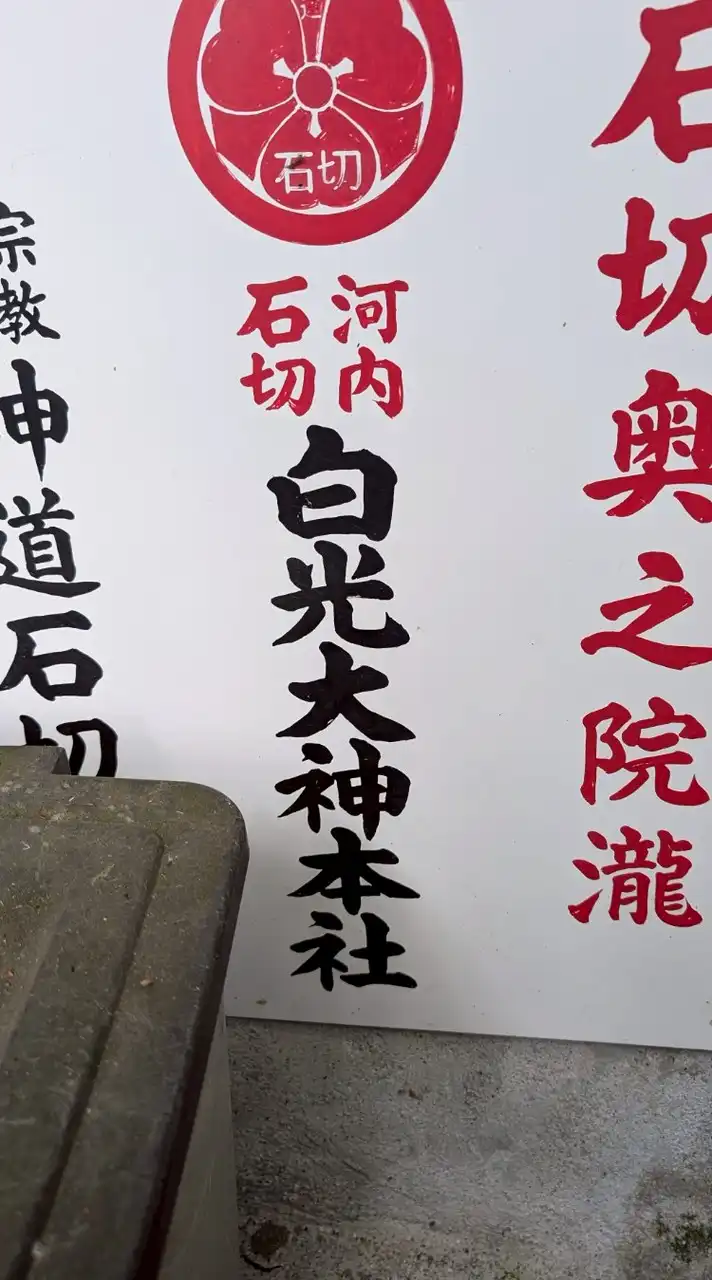 石切奥之院瀧
石切
河内
石切
白光大神本社
宗教
神道石切